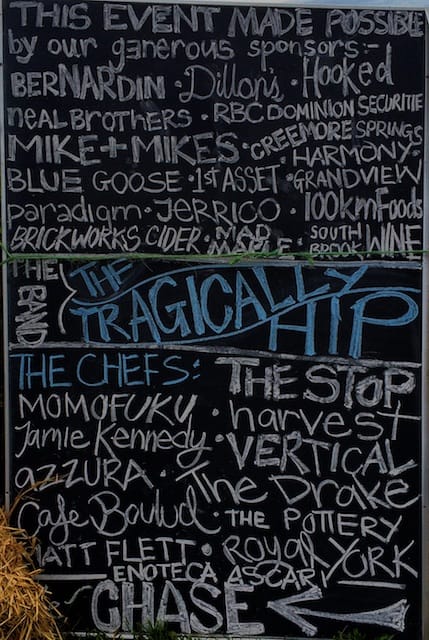 THIS EVENT MADE POSSIBLE
by our generous sponsors:-
BERNARDIN · Dillon's · Hooked
neal BROTHERS · RBC DOMINION SECURITIE
MIKE + MIKES · CREEMORE SPRINGS
HARMONY ·
BLUE GOOSE · 1st ASSET · GRANDVIEW
paradigm · JERRICO · 100km Foods
BRICKWORKS CIDER · MAD MAPLE · SOUTH BROOK WINE
THE BAND { THE TRAGICALLY HIP
THE CHEFS: THE STOP
MOMOFUKU · harvest
Jamie Kennedy · VERTICAL
aZZURA · The Drake
Cafe Boulud · THE POTTERY
MATT FLETT · Royal YORK
ENOTECA ASCARI
~ CHASE ←